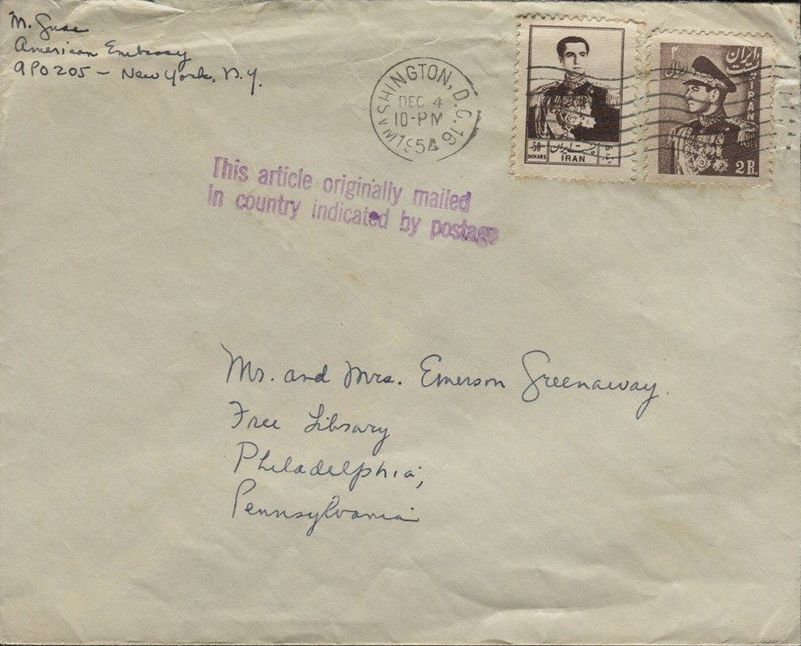 M. Guse
American Embassy
APO 205 – New York, N.Y.
WASHINGTON, D.C. 16
DEC 4
10-PM
1954
50
DINARS
پست ایران
IRAN
۲
ریال
پست ایران
IRAN
2 R.
This article originally mailed
in country indicated by postage
Mr. and Mrs. Emerson Greenaway
Free Library
Philadelphia,
Pennsylvania